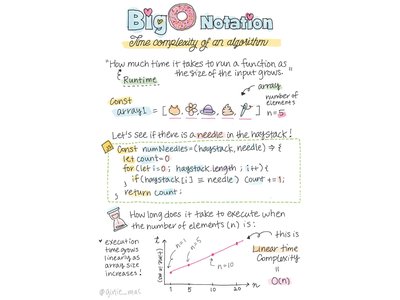 Big O Notation
Time complexity of an algorithm
"How much time it takes to run a function as
the size of the input grows."
Runtime
Const
array1 = [ , , , , ]
array
number of
elements
n=5
Let's see if there is a needle in the haystack!
Const numNeedles = (haystack, needle) => {
let count=0
for (let i=0; haystack.length; i++) {
if (haystack[i] === needle) Count += 1;
}
return Count;
}
How long does it take to execute when
the number of elements (n) is:
* execution
time grows
linearly as
array size
increases!
t
n=1
n=5
n=10
1 5 10 20
n
this is
Linear time
Complexity
=
O(n)